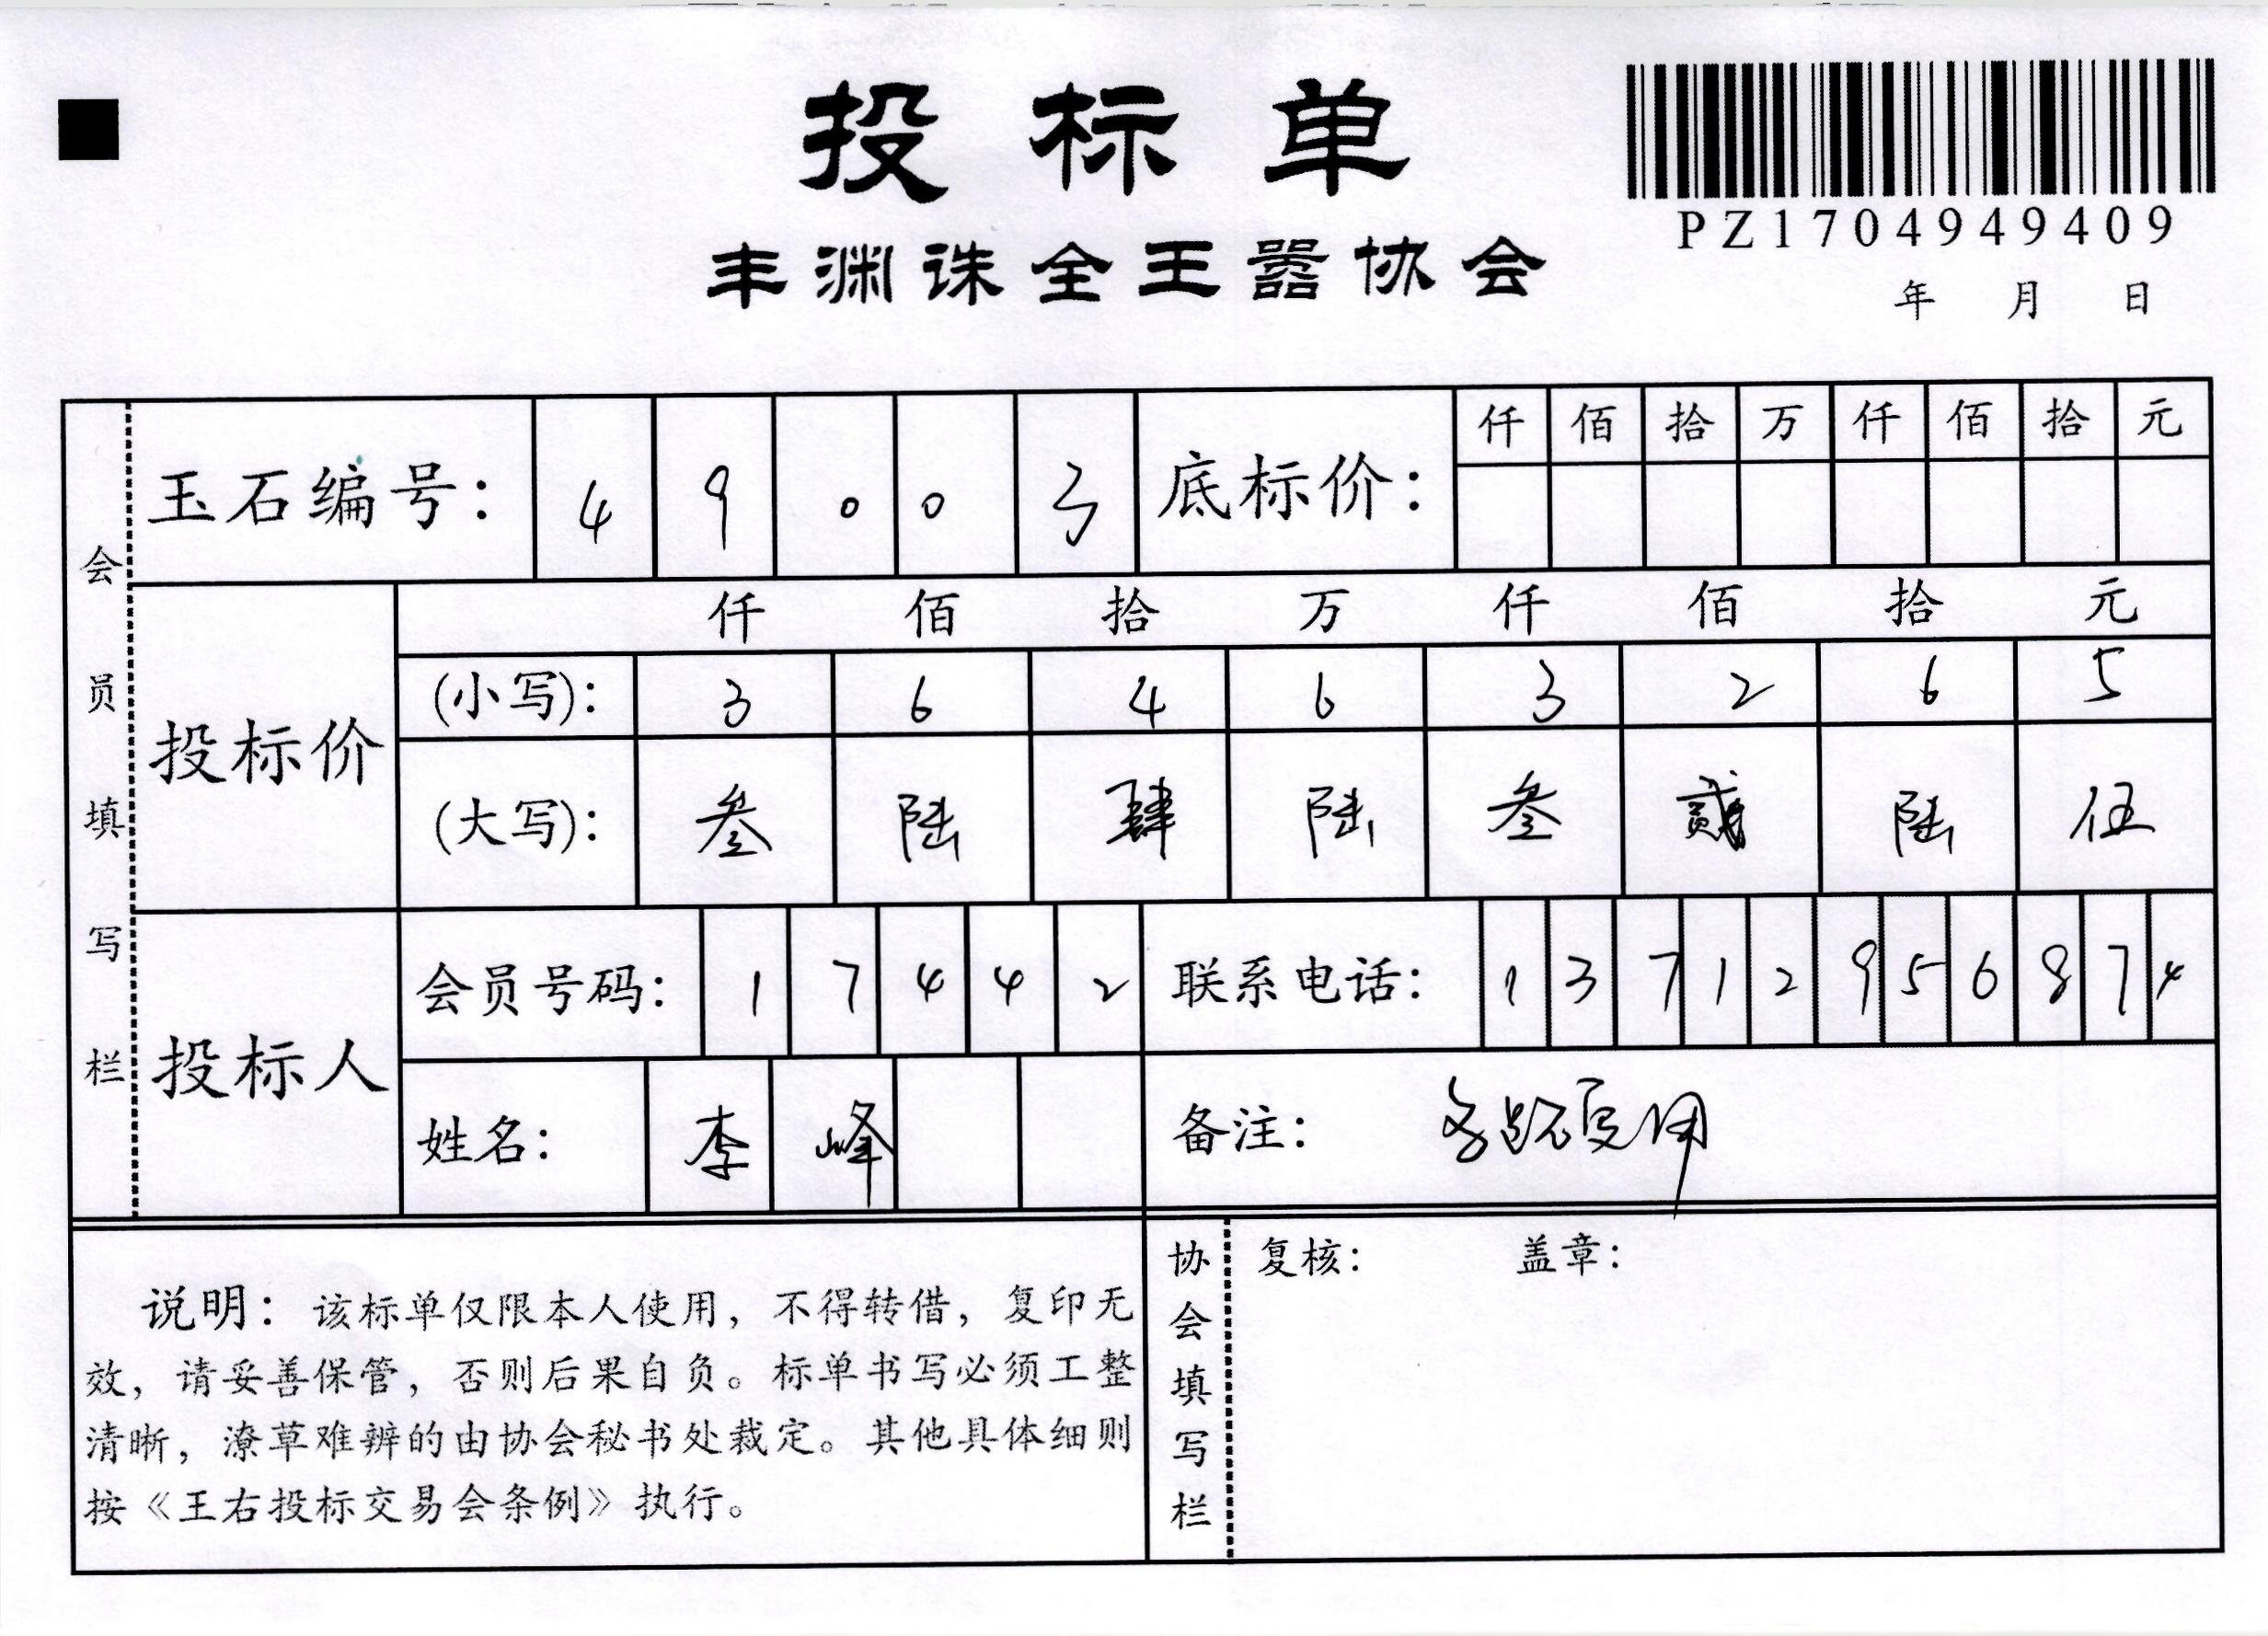 投标单
PZ1704949409
丰渊诛全王嚣协会
年 月 日
会员填写栏
玉石编号： 4 9 0 0 3 底标价： 仟 佰 拾 万 仟 佰 拾 元
投标价 仟 佰 拾 万 仟 佰 拾 元
(小写)： 3 6 4 6 3 2 6 5
(大写)： 叁 陆 肆 陆 叁 贰 陆 伍
投标人 会员号码： 1 7 4 4 2 联系电话： 1 3 7 1 2 9 5 6 8 7 4
姓名： 李 峰 备注：
协会填写栏 复核： 盖章：
说明：该标单仅限本人使用，不得转借，复印无
效，请妥善保管，否则后果自负。标单书写必须工整
清晰，潦草难辨的由协会秘书处裁定。其他具体细则
按《王右投标交易会条例》执行。